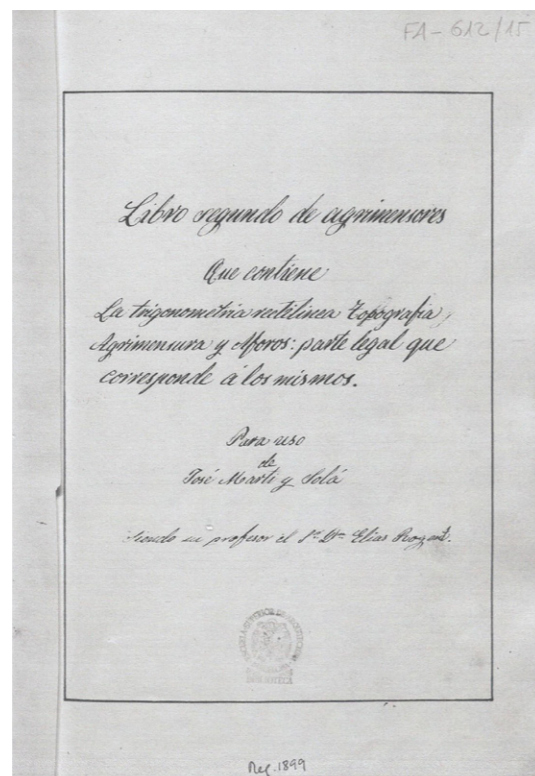 FA-612/15
Libro segundo de agrimensores
Que contiene
La trigonometria rectilinea Topografia,
Agrimensura y Aforos: parte legal que
corresponde á los mismos.
Para uso
de
José Marti y Solá
Siendo su profesor el Sr. Dn. Elias Rogent.
ESCUELA SUPERIOR DE ARQUITECTURA
BIBLIOTECA
Reg. 1899